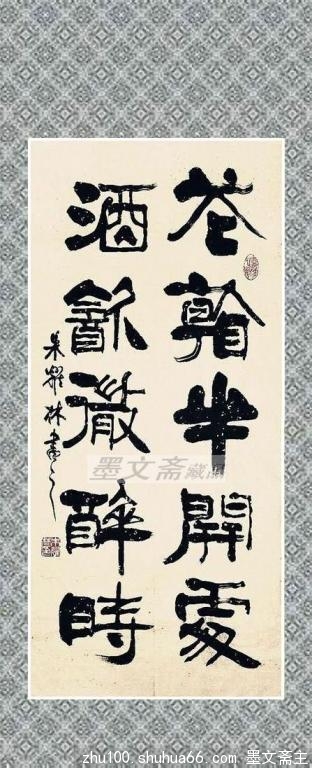 花看半開處
酒飲微醉時
朱耀林書
墨文斋藏
zhu100.shuhua66.com 墨文斋主